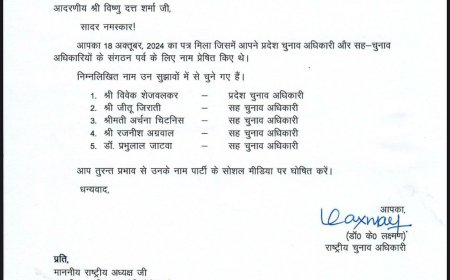 आदरणीय श्री विष्णु दत्त शर्मा जी,
सादर नमस्कार!
आपका 18 अक्तूबर, 2024 का पत्र मिला जिसमें आपने प्रदेश चुनाव अधिकारी और सह–चुनाव
अधिकारियों के संगठन पर्व के लिए नाम प्रेषित किए थे।
निम्नलिखित नाम उन सुझावों में से चुने गए हैं।
1. श्री विवेक शेजवलकर – प्रदेश चुनाव अधिकारी
2. श्री जीतू जिराती – सह चुनाव अधिकारी
3. श्रीमती अर्चना चिटनिस – सह चुनाव अधिकारी
4. श्री रजनीश अग्रवाल – सह चुनाव अधिकारी
5. डॉ. प्रभुलाल जाटवा – सह चुनाव अधिकारी
आप तुरन्त प्रभाव से उनके नाम पार्टी के सोशल मीडिया पर घोषित करें।
धन्यवाद,
आपका,
Laxman
(डॉ० के० लक्ष्मण)
राष्ट्रीय चुनाव अधिकारी
प्रति,
माननीय राष्ट्रीय अध्यक्ष जी